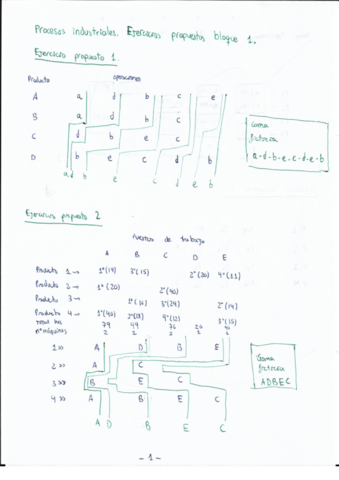 Procesos industriales. Ejercicios propuestos bloque 1.
Ejercicio propuesto 1.
Producto operaciones
A a d b c e
B a d b c
C d b e c
D b e c d b
a d b e c d e b
Coma
ficticia
a-d-b-e-c-d-e-b
Ejercicio propuesto 2
Puestos de trabajo
A B C D E
Producto 1 → 1º(19) 3º(15) 2º(20) 4º(11)
Producto 2 → 1º(20) 2º(40)
Producto 3 → 1º(16) 3º(24) 2º(14)
Producto 4 → 1º(40) 2º(18) 4º(12) 3º(15)
79 49 76 20 40
nº máquinas 2 2 2 1 2
1 >> A D B E
2 >> A C
3 >> B E C
4 >> A B E C
A D B E C
Coma
ficticia
ADBEC
- 1 -